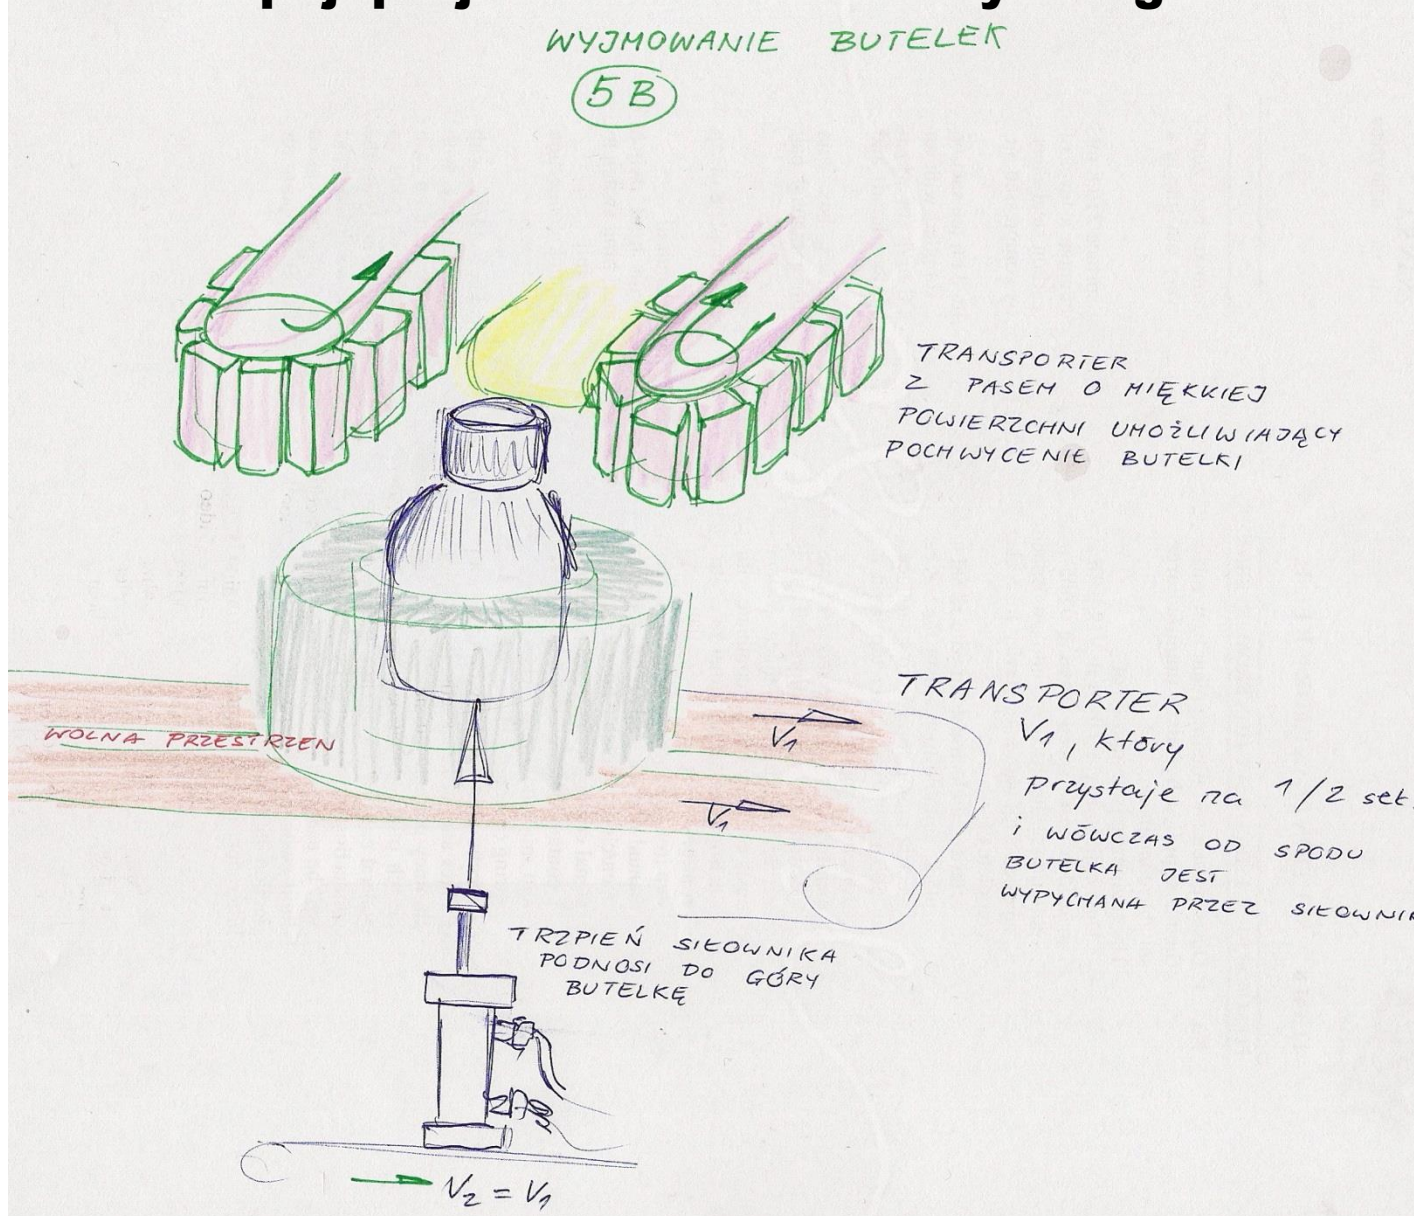 WYJMOWANIE BUTELEK
5B
TRANSPORTER
Z PASEM O MIĘKKIEJ
POWIERZCHNI UMOŻLIWIAJĄCY
POCHWYCENIE BUTELKI
TRANSPORTER
V1, który
przystaje na 1/2 sek.
i WÓWCZAS OD SPODU
BUTELKA JEST
WYPYCHANA PRZEZ
WOLNA PRZESTRZEN
V1
V1
TRZPIEŃ SIŁOWNIKA
PODNOSI DO GÓRY
BUTELKĘ
V2 = V1